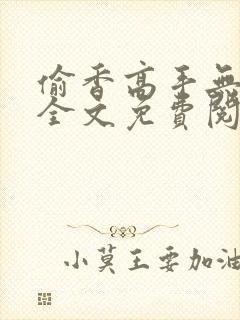 偷香高手無
全文免費閱
小莫王要加油